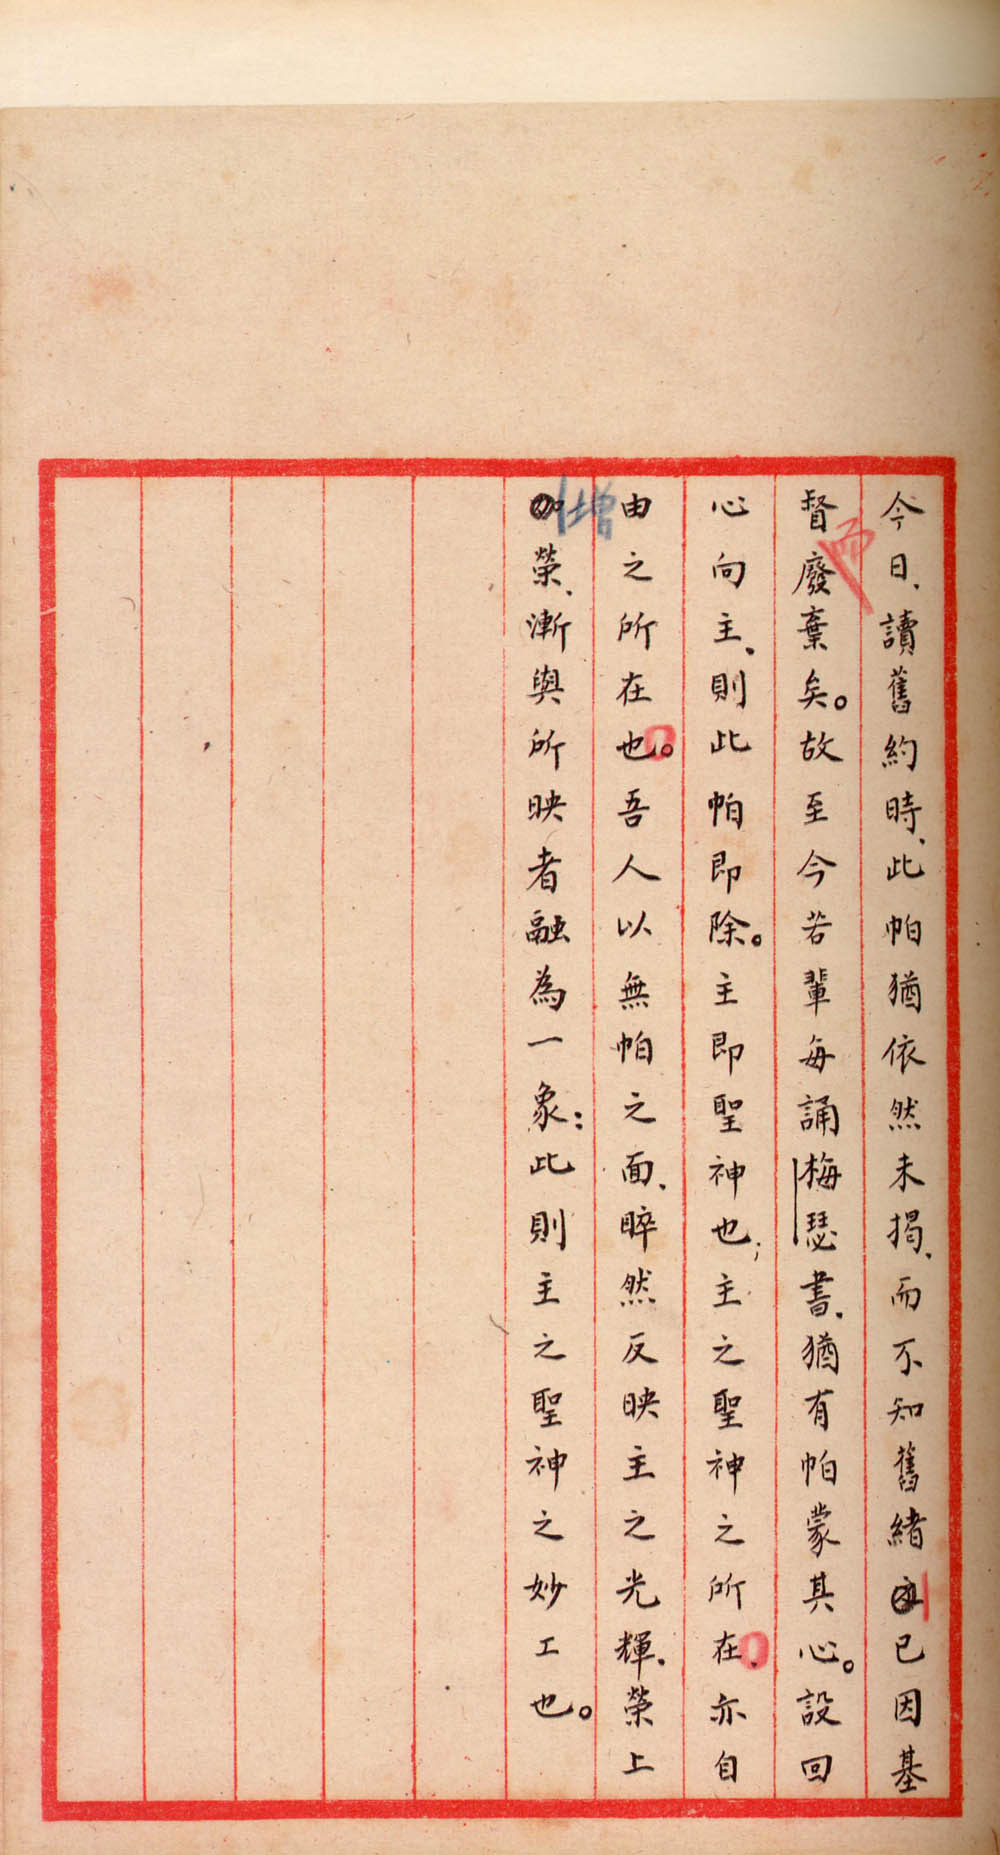 今日、讀舊約時、此帕猶依然未揭、而不知舊緒已因基
督而廢棄矣。故至今若輩每誦梅瑟書、猶有帕蒙其心。設回
心向主、則此帕即除。主即聖神也；主之聖神之所在、亦自
由之所在也。吾人以無帕之面、睟然反映主之光輝、榮上
增榮、漸與所映者融為一象：此則主之聖神之妙工也。